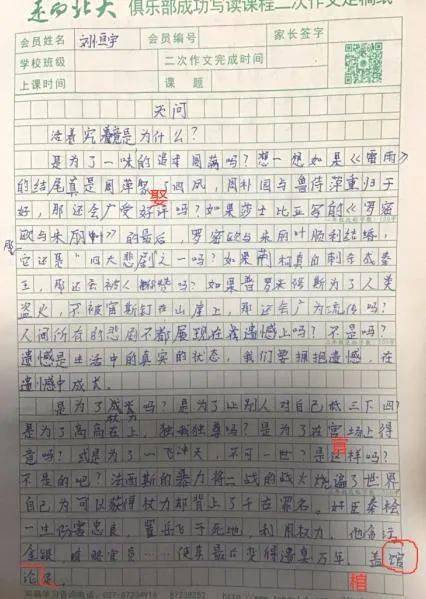 走向北大 俱乐部成功写读课程二次作文定稿纸
会员姓名 刘恒宇 会员编号 家长签字
学校班级 二次作文完成时间
上课时间 课题
天问
活着究竟是为什么?
是为了一味的追求圆满吗?想一想如果《雷雨》
的结尾真是周萍娶了四凤,周朴园与鲁侍萍重归于
娶
好,那还会广受好评吗?如果莎士比亚写的《罗密
欧与朱丽叶》的最后,罗密欧与朱丽叶顺利结婚,
它还是“四大悲剧之一吗?如果荆轲真的刺杀成秦
王,那还会被人 吗?如果普罗米修斯为了人类
盗火,不被宙斯钉在山崖上,那还会广为流传吗?
人间所有的悲剧不都展现在我遗憾上吗?不是吗?
遗憾是生活中的真实的状态,我们要拥抱遗憾,在
遗憾中成长。
是为了 吗?是为了让别人对自己低三下四?
是为了高高在上,独我独尊吗?是为了在官场上得
官
意吗?或是为了一飞冲天,不可一世?是这样吗?
不是的吧?法西斯的暴力将二战的战火烧遍了世界
自己为可以获得权力却背上了千古罪名。奸臣秦桧
一生伤害忠良,置岳飞于死地,利用权力,他贪污
金银, 百官……使其最后变得遗臭万年,盖馆
论定。
棺